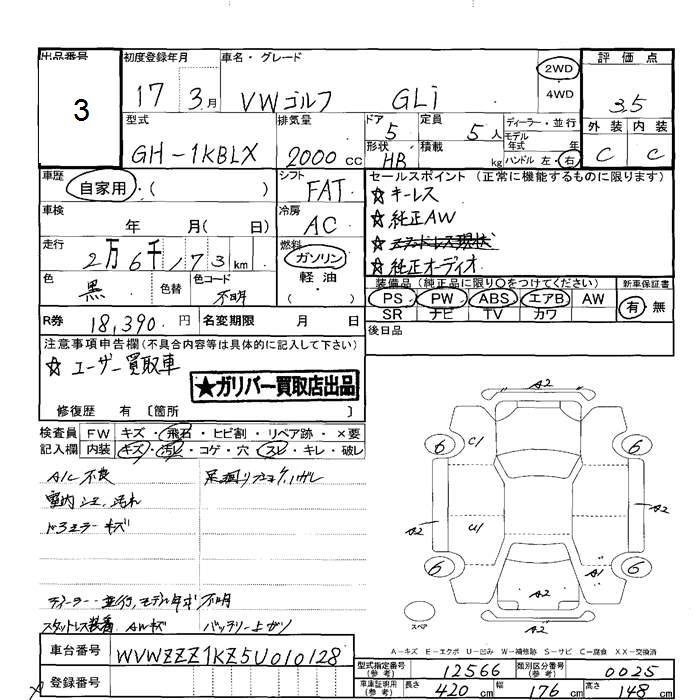 出品番号 初度登録年月 車名・グレード 評価点
3 17 3月 VW ゴルフ GLi 2WD 4WD 3.5
型式 排気量 ドア 定員 ディーラー・並行 外装 内装
GH-1KBLX 2000cc 5 5人 モデル年式 年 C C
形状 HB 積載 kg ハンドル 左・右
車歴 自家用・( ) シフト FAT セールスポイント (正常に機能するものに限ります)
車検 年 月( 日) 冷房 AC ☆キーレス
☆純正AW
走行 2万6千173km 燃料 ガソリン 軽油 ( )
☆純正オーディオ
色 黒 色替 色コード 不明
装備品 (純正品に限り○をつけてください) 新車保証書
PS PW ABS エアB AW 有・無
SR ナビ TV カワ
R券 18,390円 名変期限 月 日 後日品
注意事項申告欄(不具合内容等は具体的に記入して下さい)
☆ユーザー買取車
★ガリバー買取店出品
修復歴 有 〔箇所 〕
検査員記入欄 FW キズ・飛石・ヒビ割・リペア跡・×要
内装 キズ・汚レ・コゲ・穴・スレ・キレ・破レ
A/C不良
室内シミ、汚れ
ドアミラーキズ
ディーラー・並行、モデル年式不明
スタットレス装着 AWキズ バッテリー上がり
A2
6 C/ 6
A2 U1 A2
6 A2 A1 6
スペア A2
A-キズ E-エクボ U-凹み W-補修跡 S-サビ C-腐食 XX-交換済
車台番号 WVWZZZ1KZ5U010128
登録番号
型式指定番号(参考) 12566 類別区分番号(参考) 0025
車庫証明用(参考) 長さ 420cm 幅 176cm 高さ 148cm